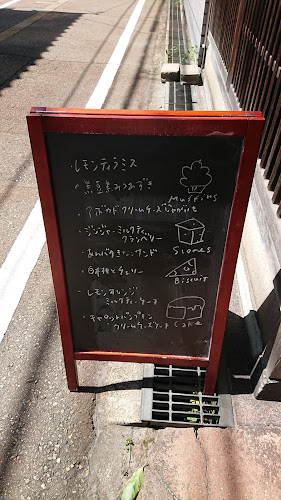 ・レモンティラミス
・黒豆きなみつあずき
Muffins
・アボカドクリームチーズじゃがいも
・ジンジャーミルクティ
クランベリー
Scones
・あんバターサンド
・日本梨とチェリー
Biscuit
・レモンオレンジ
ミルクティーケーキ
・キャロットパンプキン
クリームチーズケーキ
Cake